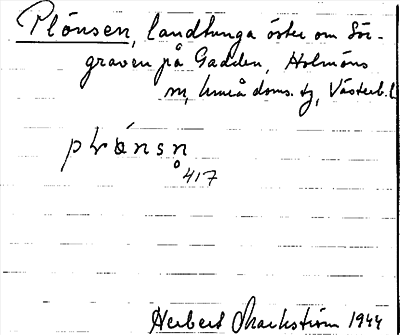 Plönsen, landtunga öster om Sör-
graven på Gadden, Holmöns
sn, Umeå doms. tg, Västerb. l
417
Herbert Markström 1944